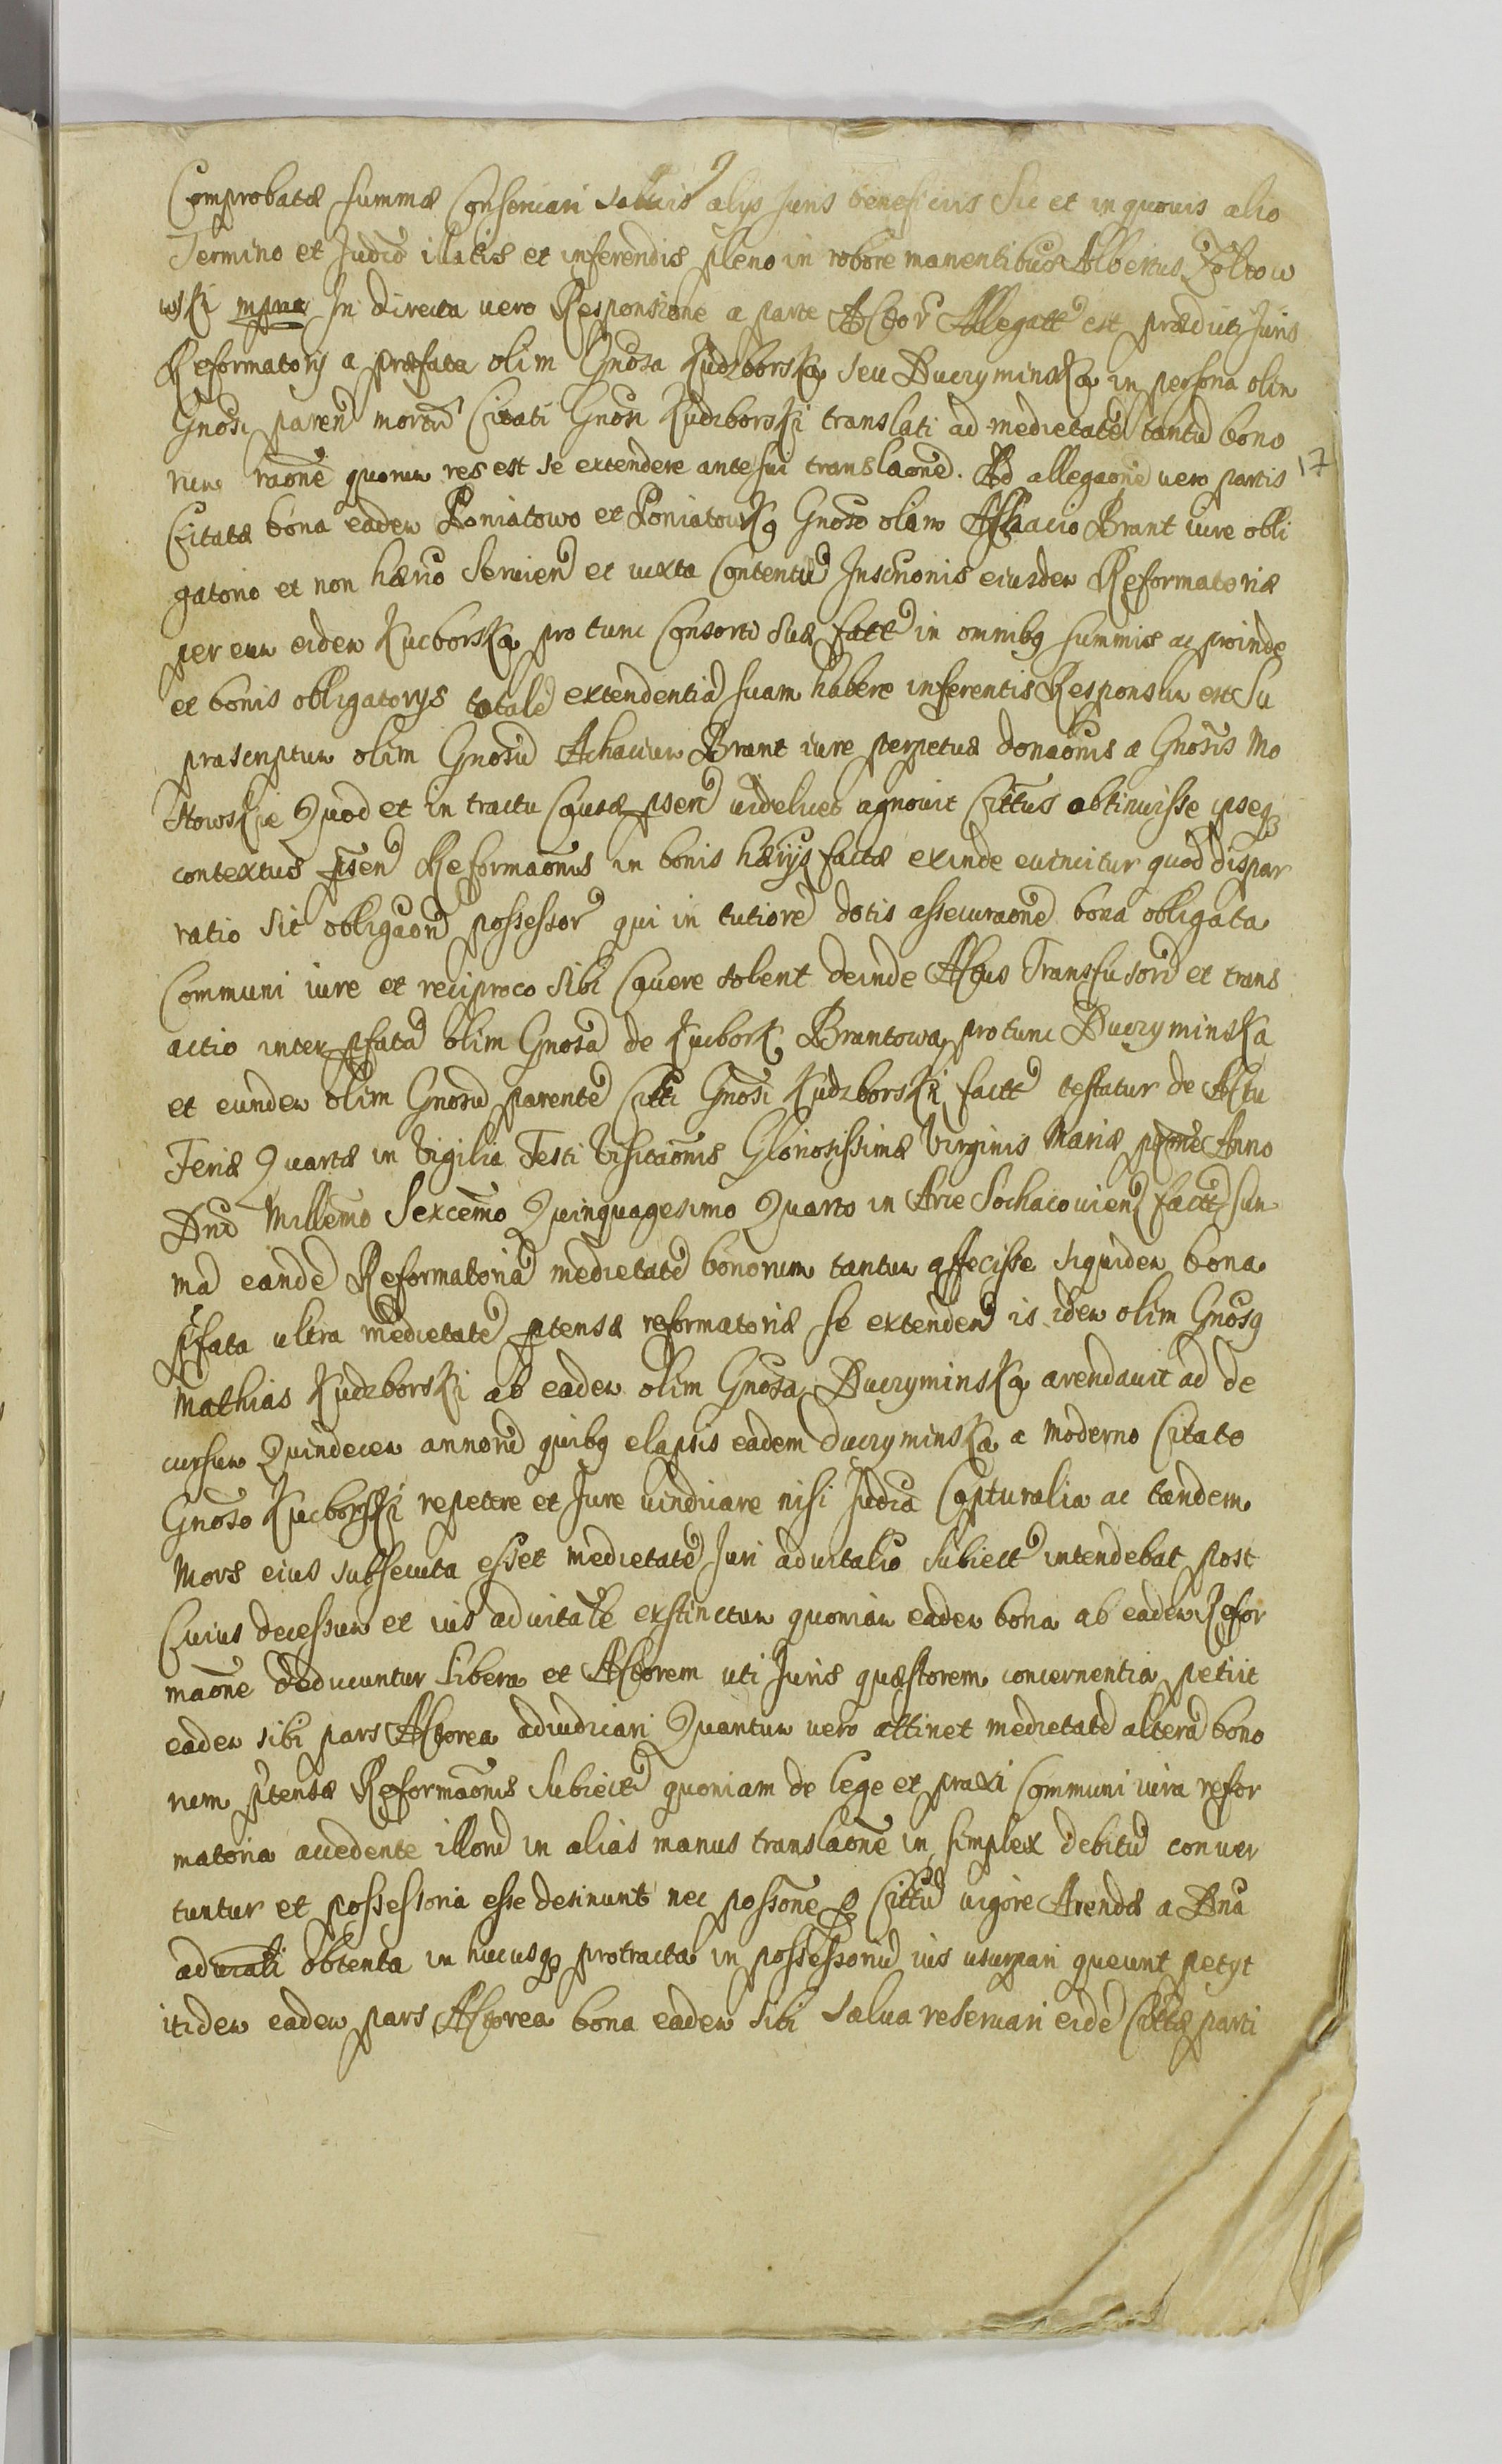 Comprobatæ summæ Conseruari saluis alijs Juris beneficiis Sic et in quouis alio
Termino et Judō illatis et inferendis pleno in robore manentibus Albertus Zołtow
wski mpria In directa vero Responsione a parte Actor Allegatt est præduti Juris
Reformatorij a præfata olim Gnosa Kudzborska seu Duczyminska in persona olim
Gnosi paren mortui Citati Gnosi Kudzborski translati ad medietatē tantū bono
rum raōne quorum res est se extendere ante sui translaōnē. Ad allegaōnē vero partis
17
Citatæ bona eadem Koniatowo et Koniatowko Gnoso olim Achacio Brant iure obli
gatorio et non hærio seruien et iuxta Contentū Inscriōnis eiusdem Reformatoriæ
per eum eidem Kucborska pro tunc Consorti suæ fatt in omnibq summis ac proinde
et bonis obligatorijs totalē extendentiā suam habere inferentis Responsum est Su
prascriptum olim Gnosū Achacium Brant iure perpetuæ donaōnis a Gnosis Mo
stowskie Quod et in tractu Causæ psen videlicet agnouit Cittus obtinuisse ipseq
contextus psen Reformaōnis in bonis hærijs factæ exinde euincitur quod dispar
ratio sit obligaōn possessor qui in tutiorē dotis assecuraōnē bona obligata
Communi iure et reciproco sibi Cauere solent deinde Actus Transfusorū et trans
actio inter pfatā olim Gnosā de Kucbork Brantowa pro tunc Duczyminska
et eundem olim Gnosū parentē Citti Gnosi Kudzborski factt testatur de Actu
Feriæ Quartæ in Vigilia Festi Visitaōnis Gloriosissimæ Virginis Mariæ pxme Anno
Dni Millemo Sexcemo Quinquagesimo Quarto in Arce Sochacouien factt sum
mā eandē Reformatoriā medietatē bonorum tantum affecisse siquidem bona
pfata ultra medietatē ptensæ reformatoriæ se extenden is idem olim Gnosq
Mathias Kudzborski ab eadem olim Gnosa Duczyminska arendauit ad de
cursum Quindecem annorū quibq elapsis eadem duczyminska a moderno Citato
Gnoso Kucborski repetere et Jure uindicare nisi Judicia Capturalia ac tandem
Mors eius subsecuta esset medietatē Juri aduitalio subiectt intendebat post
Cuius decessum et ius aduitale exstinctum quoniam eadem bona ab eadem Refor
maōne deducuntur libera et Actorem uti Juris quæstorem concernentia petiit
eadem sibi pars Actorea adiudicari Quantum vero attinet medietatē alterā bono
rum ptensæ Reformaōnis subiectt quoniam de lege et praxi Communi iura refor
matoria accedente illorū in alias manus translaōne in simplex debitū conuer
tuntur et possessoria esse desinunt nec possōne p Cittū uigore Arendæ a Dna
aduitali obtenta in hucusq protracta in possessoriū ius usurpari queunt petyt
itidem eadem pars Actorea bona eadem sibi salua reseruari eidē Cittæ parti